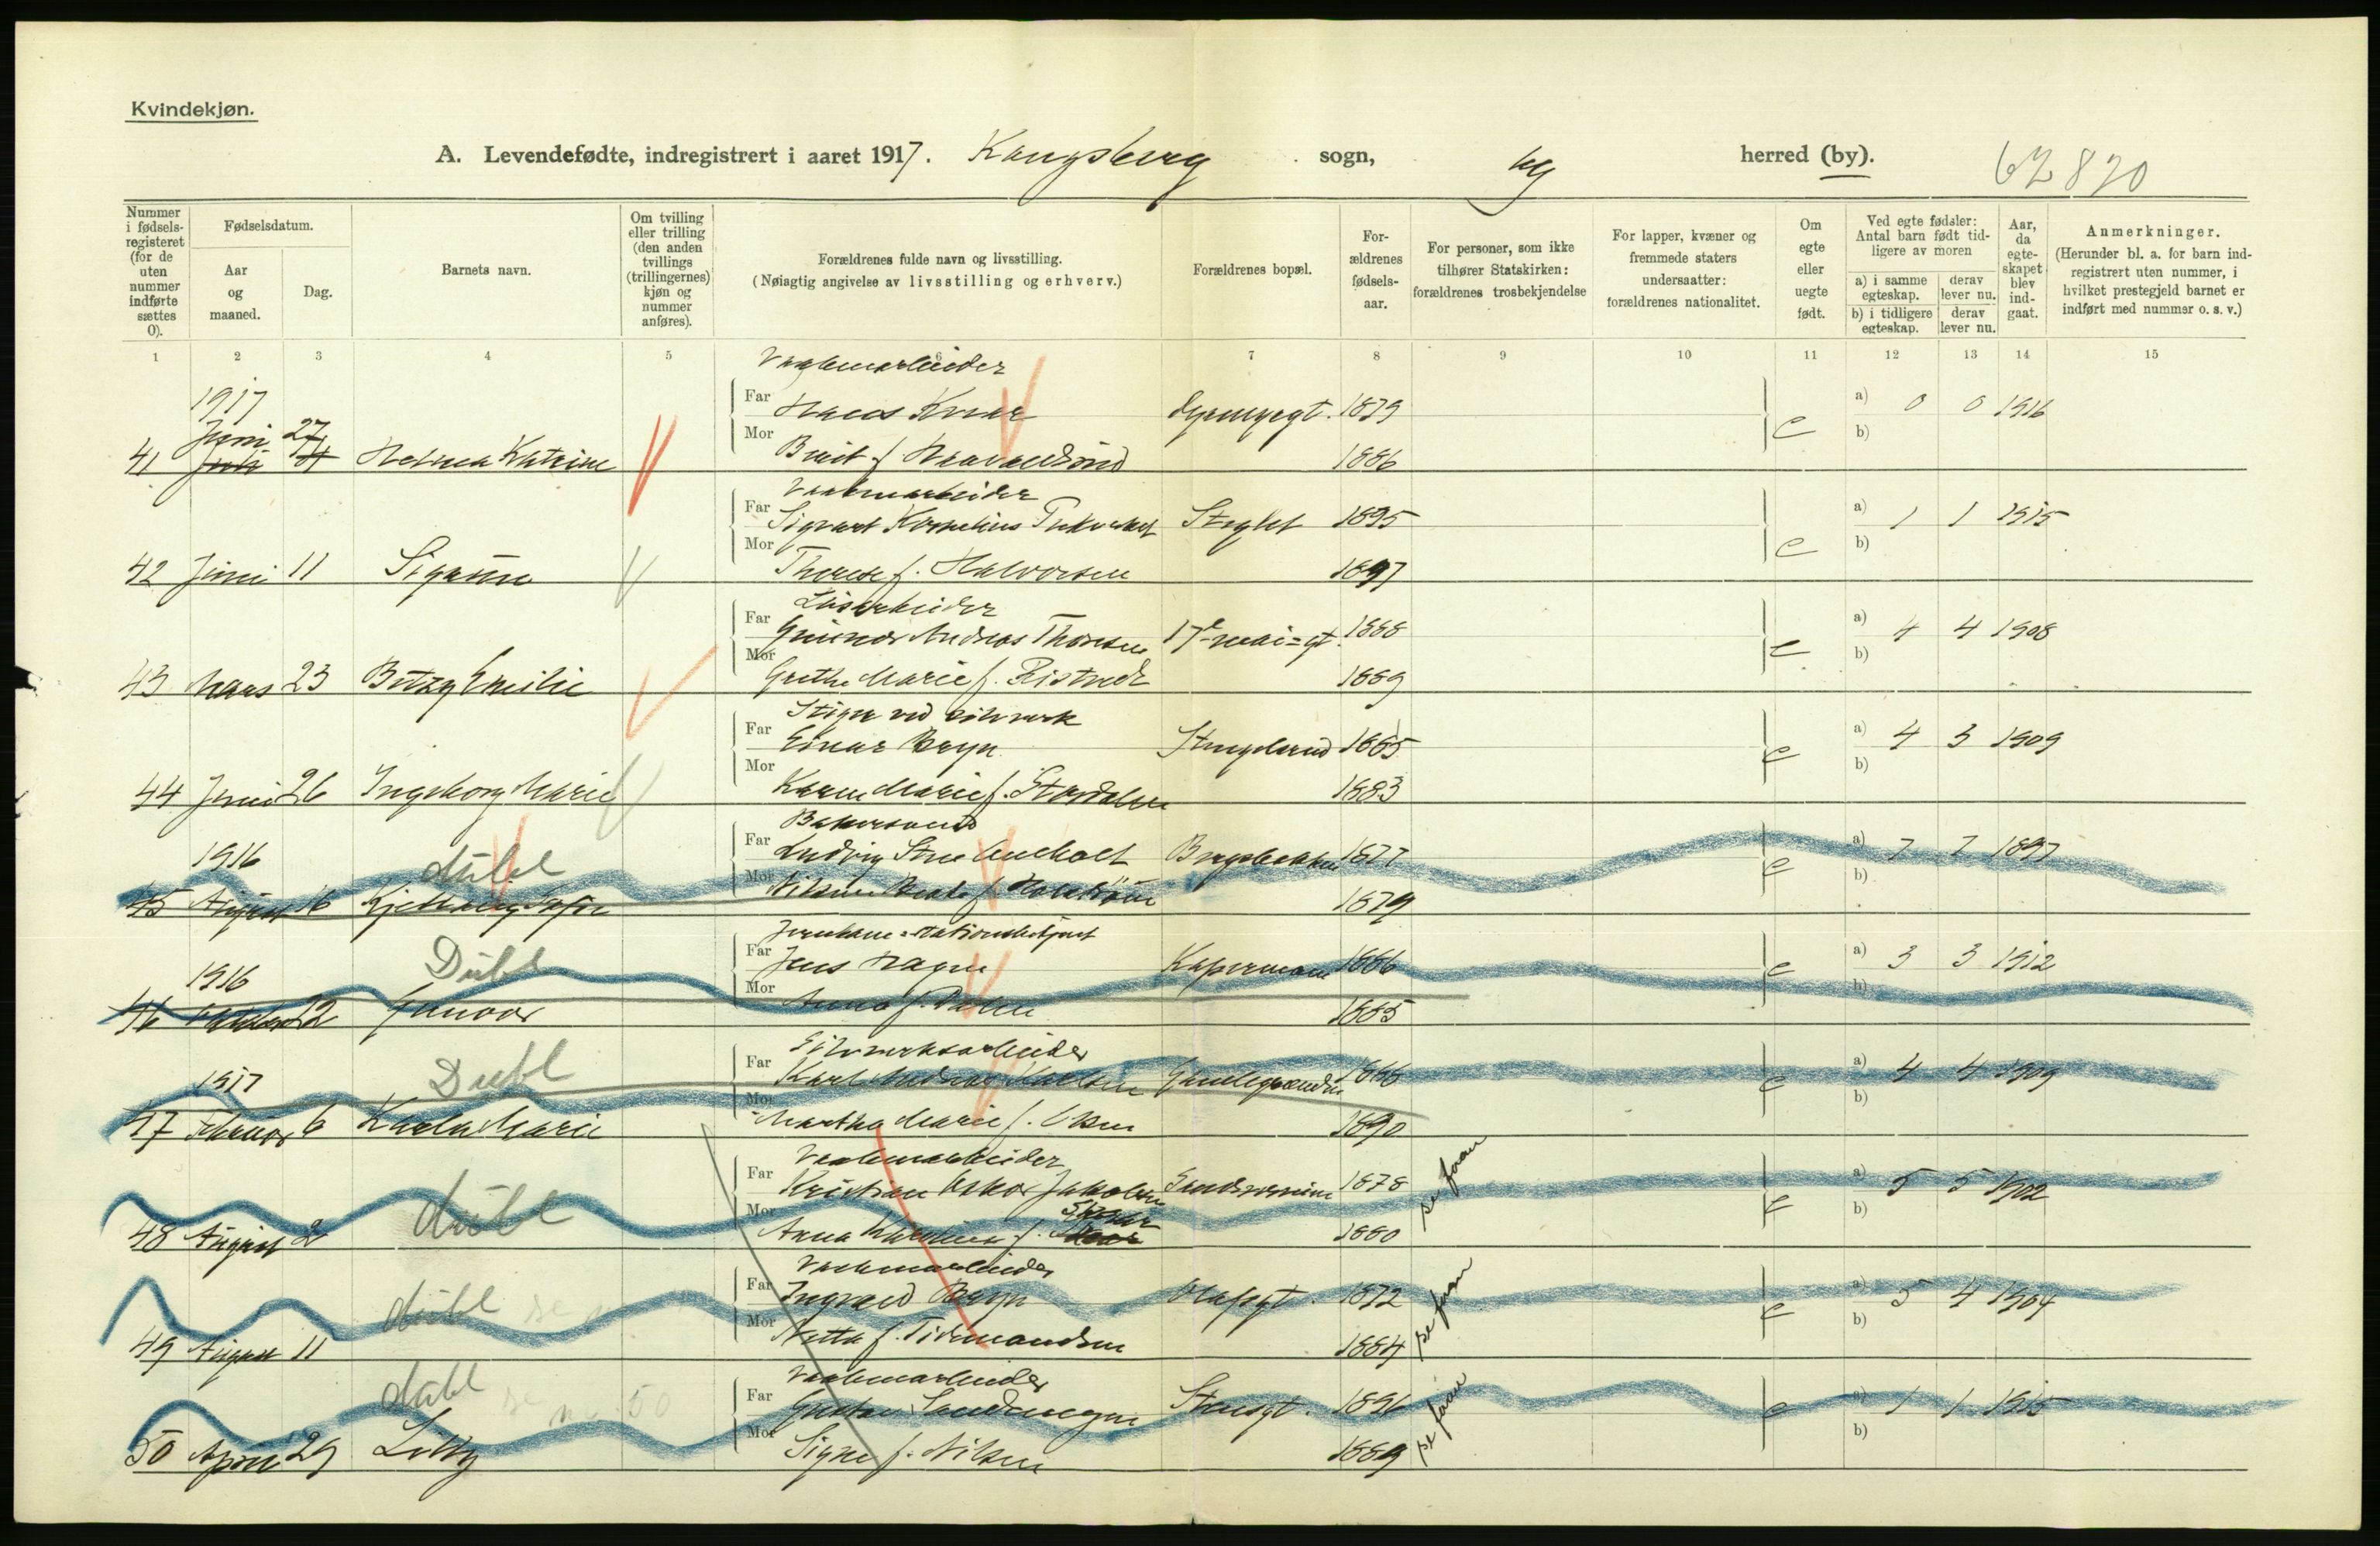 Kvindekjøn.
A. Levendefødte, indregistrert i aaret 1917. Kongsberg sogn, by herred (by). 62 820
Nummer i fødsels-registeret (for de uten nummer indførte sættes 0).
Fødselsdatum.
Aar og maaned.
Dag.
Barnets navn.
Om tvilling eller trilling (den anden tvillings (trillingernes) kjøn og nummer anføres).
Forældrenes fulde navn og livsstilling.
(Nøiagtig angivelse av livsstilling og erhverv.)
Forældrenes bopæl.
For-ældrenes fødsels-aar.
For personer, som ikke tilhører Statskirken: forældrenes trosbekjendelse
For lapper, kvæner og fremmede staters undersaatter: forældrenes nationalitet.
Om egte eller uegte født.
Ved egte fødsler: Antal barn født tid-ligere av moren
a) i samme egteskap.
derav lever nu.
b) i tidligere egteskap.
derav lever nu.
Aar, da egte-skapet blev ind-gaat.
Anmerkninger.
(Herunder bl. a. for barn ind-registrert uten nummer, i hvilket prestegjeld barnet er indført med nummer o. s. v.)
1 2 3 4 5 6 7 8 9 10 11 12 13 14 15
Vaabenarbeider
1917
Far Hans 1879 a) 0 0 1916
Juni 27
Mor e b)
41 Juli Katrine f. 1886
Vaabenarbeider
Far Sigvart Kornelius Steglet 1895 a) 1 1 1915
Mor e b)
42 Juni 11 Sigrun Therese f. Halvorsen 1897
Løsarbeider
Far Gunnar Andreas Thoresen 17de mai=gt. 1888 a) 4 4 1908
Mor e b)
43 Mars 23 Betzy Emilie Grethe Marie f. 1889
Stiger ved sølvverk
Far Einar Bryn 1885 a) 4 3 1909
Mor e b)
44 Juni 26 Ingeborg Marie Karen Marie f. Stordalen 1883
Bakersvend
1916 dubl
Far Ludvig 1877 a) 7 7 1897
Mor e b)
45 August 16 f. 1879
Jernbane=stationsbetjent
1916 Dubl
Far Jens Hagen Kapermoen 1886 a) 3 3 1912
Mor e b)
46 12 Gunvor Anna f. 1885
Sølvverksarbeider
1917 Dubl
Far Karl Andreas 1888 a) 4 4 1909
Mor e b)
47 Februar 6 Karla Marie Martha Marie f. Olsen 1890
Vaabenarbeider
Far Kristian Oskar Jakobsen 1878 se foran a) 5 5 1902
Mor dubl e b)
48 August 2 Anna f. 1880
Vaabenarbeider
Far Ingvald Bryn Olafsgt. 1872 se foran a) 5 4 1904
Mor dubl e b)
49 August 11 f. Tidemandsen 1884
Vaabenarbeider
dubl se no 50
Far Gustav Stensgt. 1896 se foran a) 1 1 1915
Mor e b)
50 April 29 Lilly Signe f. Nilsen 1889